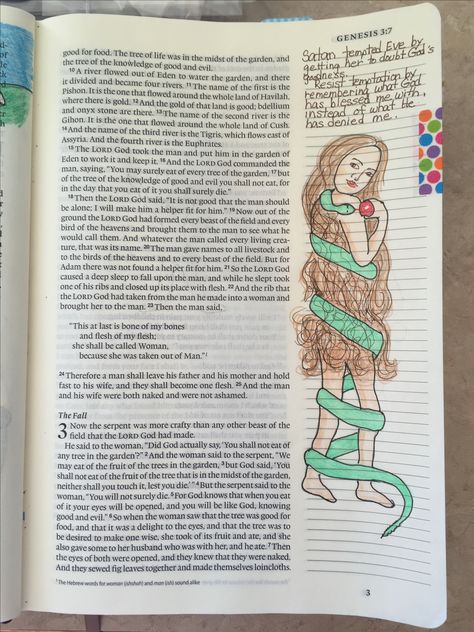 GENESIS 3:7
good for food. The tree of life was in the midst of the garden, and
the tree of the knowledge of good and evil.
10 A river flowed out of Eden to water the garden, and there
it divided and became four rivers. 11 The name of the first is the
Pishon. It is the one that flowed around the whole land of Havilah,
where there is gold. 12 And the gold of that land is good; bdellium
and onyx stone are there. 13 The name of the second river is the
Gihon. It is the one that flowed around the whole land of Cush.
14 And the name of the third river is the Tigris, which flows east of
Assyria. And the fourth river is the Euphrates.
15 The LORD God took the man and put him in the garden of
Eden to work it and keep it. 16 And the LORD God commanded the
man, saying, “You may surely eat of every tree of the garden, 17 but
of the tree of the knowledge of good and evil you shall not eat, for
in the day that you eat of it you shall surely die.”
18 Then the LORD God said, “It is not good that the man should
be alone; I will make him a helper fit for him.” 19 Now out of the
ground the LORD God had formed every beast of the field and every
bird of the heavens and brought them to the man to see what he
would call them. And whatever the man called every living crea-
ture, that was its name. 20 The man gave names to all livestock and
to the birds of the heavens and to every beast of the field. But for
Adam there was not found a helper fit for him. 21 So the LORD God
caused a deep sleep to fall upon the man, and while he slept took
one of his ribs and closed up its place with flesh. 22 And the rib that
the LORD God had taken from the man he made into a woman and
brought her to the man. 23 Then the man said,
“This at last is bone of my bones
and flesh of my flesh;
she shall be called Woman,
because she was taken out of Man.”1
24 Therefore a man shall leave his father and his mother and hold
fast to his wife, and they shall become one flesh. 25 And the man
and his wife were both naked and were not ashamed.
The Fall
3 Now the serpent was more crafty than any other beast of the
field that the LORD God had made.
He said to the woman, “Did God actually say, ‘You shall not eat of
any tree in the garden’?” 2 And the woman said to the serpent, “We
may eat of the fruit of the trees in the garden, 3 but God said, ‘You
shall not eat of the fruit of the tree that is in the midst of the garden,
neither shall you touch it, lest you die.’” 4 But the serpent said to the
woman, “You will not surely die. 5 For God knows that when you eat
of it your eyes will be opened, and you will be like God, knowing
good and evil.” 6 So when the woman saw that the tree was good for
food, and that it was a delight to the eyes, and that the tree was to
be desired to make one wise, she took of its fruit and ate, and she
also gave some to her husband who was with her, and he ate. 7 Then
the eyes of both were opened, and they knew that they were naked.
And they sewed fig leaves together and made themselves loincloths.
1 The Hebrew words for woman (ishshah) and man (ish) sound alike
Satan tempted Eve by
getting her to doubt God's
goodness.
Resist temptation by
remembering what God
has blessed me with,
instead of what He
has denied me.
3